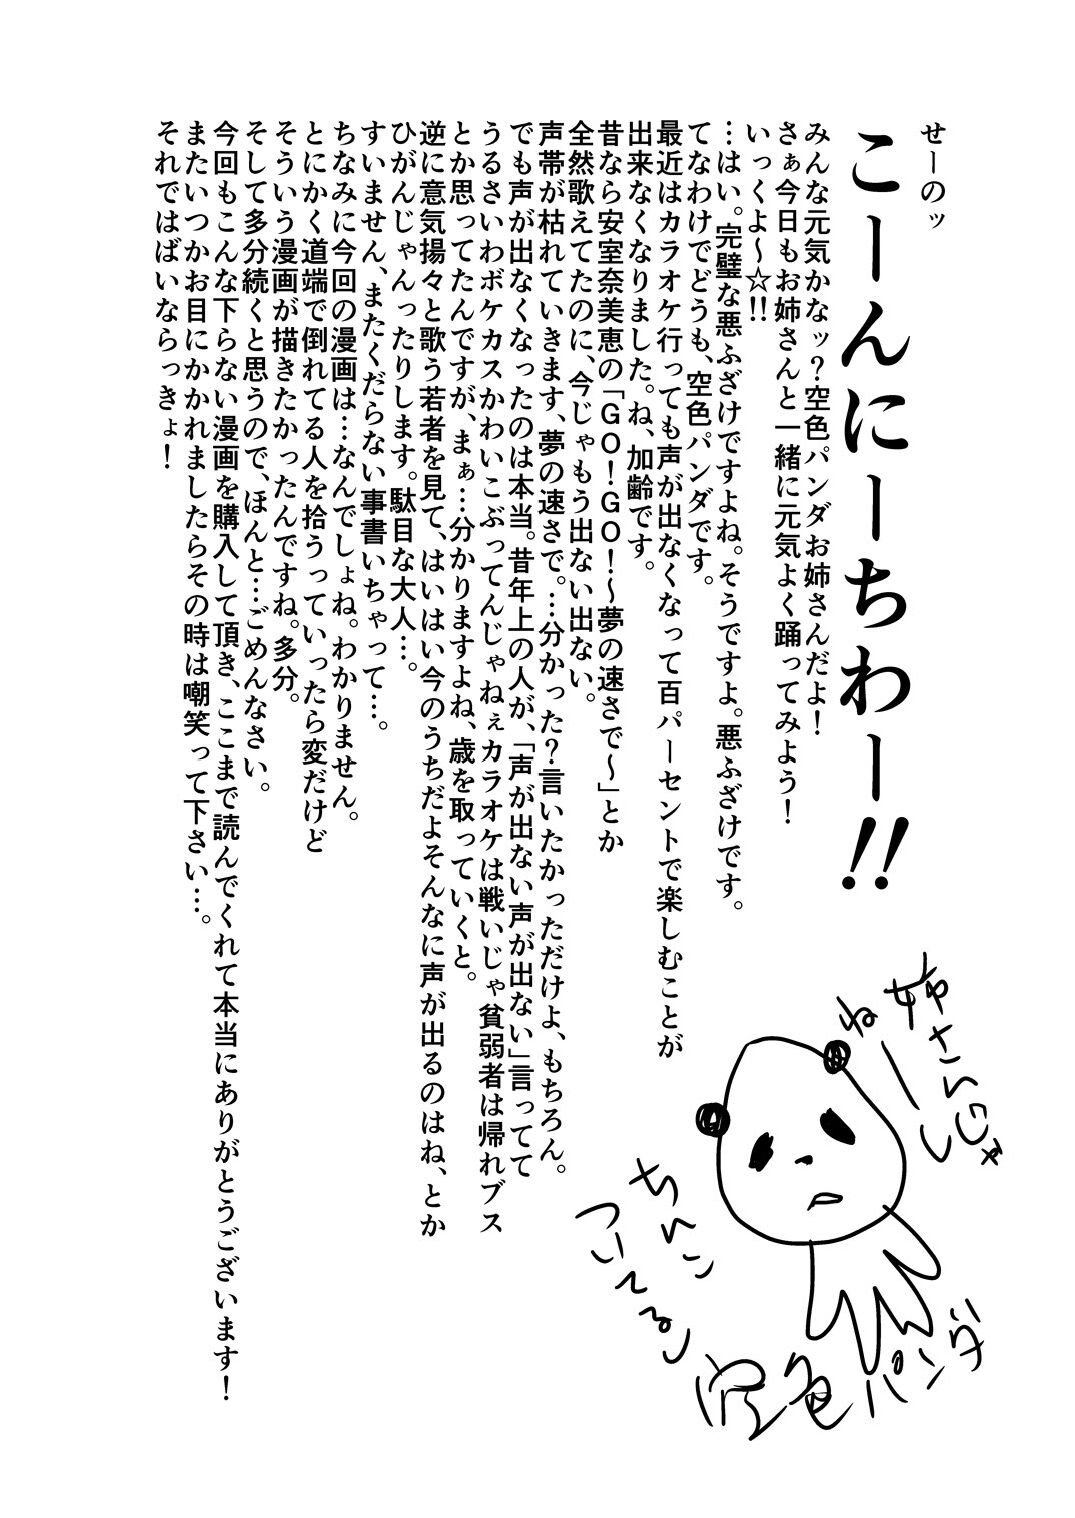 せーのッ
こーんにーちわー!!
みんな元気かなッ?空色パンダお姉さんだよ!
さぁ今日もお姉さんと一緒に元気よく踊ってみよう!
いっくよ～☆!!
…はい。完璧な悪ふざけですよね。そうですよ。悪ふざけです。
てなわけでどうも、空色パンダです。
最近はカラオケ行っても声が出なくなって百パーセントで楽しむことが
出来なくなりました。ね、加齢です。
昔なら安室奈美恵の「GO!GO!～夢の速さで～」とか
全然歌えてたのに、今じゃもう出ない出ない。
声帯が枯れていきます、夢の速さで。…分かった?言いたかっただけよ、もちろん。
でも声が出なくなったのは本当。昔年上の人が、「声が出ない声が出ない」言ってて
うるさいわボケカスかわいこぶってんじゃねぇカラオケは戦いじゃ貧弱者は帰れブス
とか思ってたんですが、まぁ…分かりますよね、歳を取っていくと。
逆に意気揚々と歌う若者を見て、はいはい今のうちだよそんなに声が出るのはね、とか
ひがんじゃんったりします。駄目な大人…。
すいません、またくだらない事書いちゃって…。
ちなみに今回の漫画は…なんでしょね。わかりません。
とにかく道端で倒れてる人を拾うっていったら変だけど
そういう漫画が描きたかったんですね。多分。
そして多分続くと思うので、ほんと…ごめんなさい。
今回もこんな下らない漫画を購入して頂き、ここまで読んでくれて本当にありがとうございます!
またいつかお目にかかれましたらその時は嘲笑って下さい…。
それではばいならっきょ!
姉さんじゃ
ねーし
ちんこ
ついてるし
空色パンダ